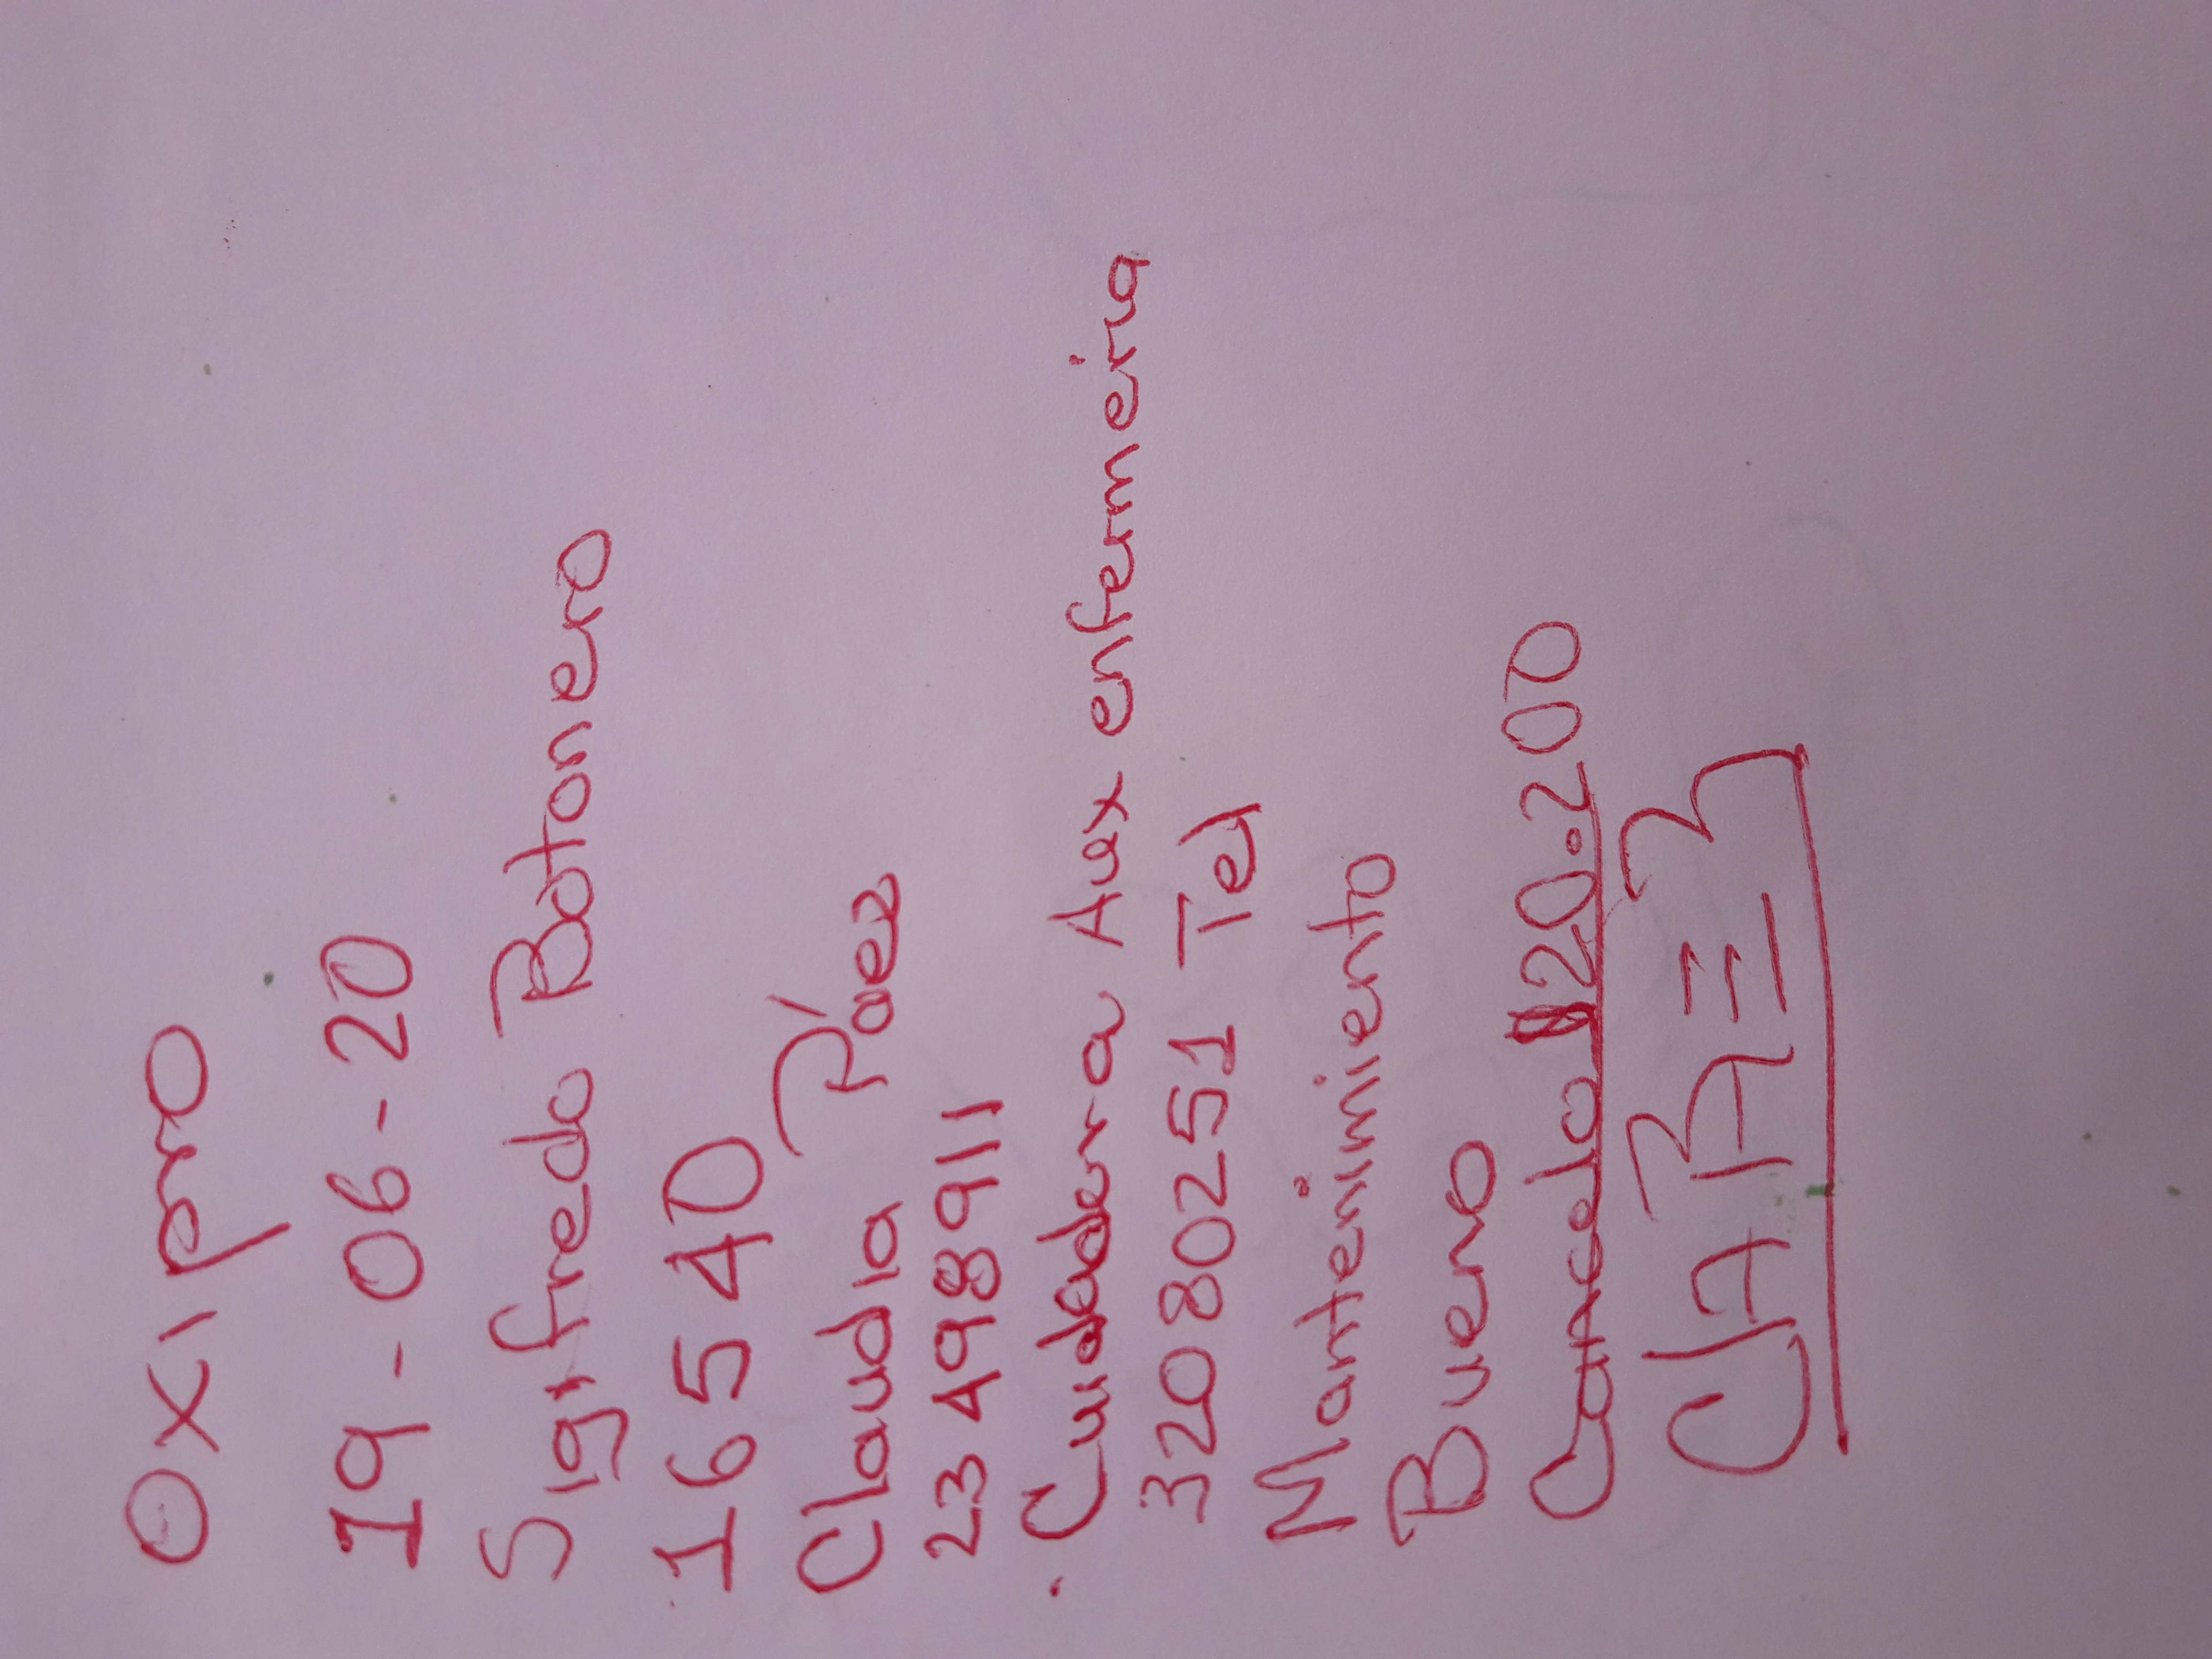 OXI pro
19-06-20
Sigifredo Botonero
16540
Claudia Páez
23498911
. Cuidadera Aux enfermeira
320 80251 Tel
Mantenimiento
Bueno
Cancelo $20.200